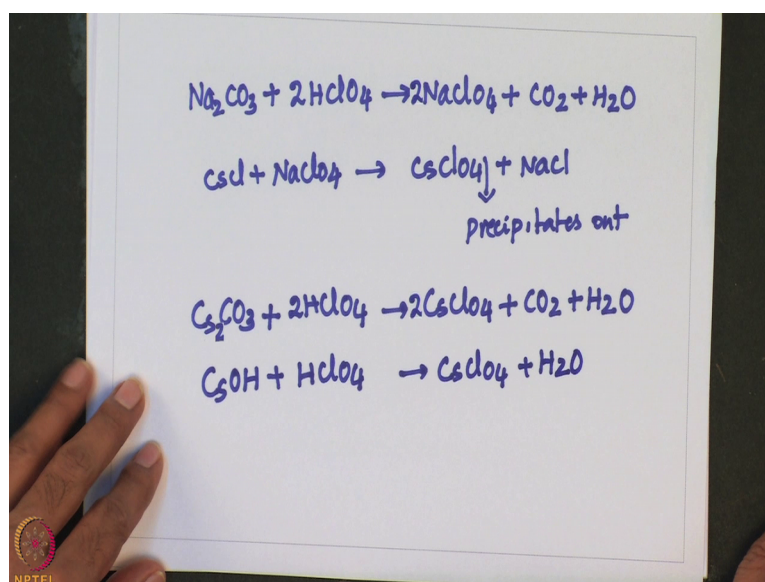 Na₂CO₃ + 2HClO₄ → 2NaClO₄ + CO₂ + H₂O
CsCl + NaClO₄ → CsClO₄↓ + NaCl
Precipitates out
Cs₂CO₃ + 2HClO₄ → 2CsClO₄ + CO₂ + H₂O
CsOH + HClO₄ → CsClO₄ + H₂O
NPTEL